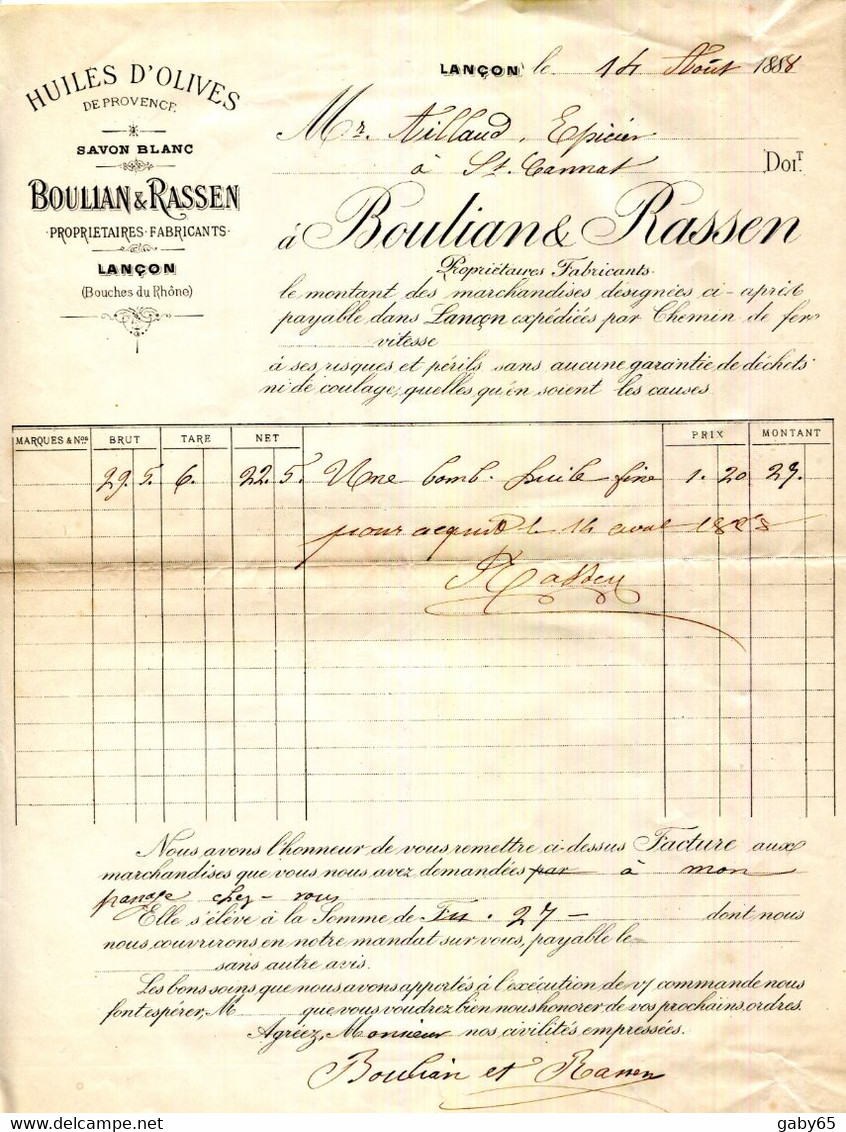 HUILES D'OLIVES
DE PROVENCE
SAVON BLANC
BOULIAN & RASSEN
PROPRIETAIRES-FABRICANTS
LANÇON
(Bouches du Rhône)
LANÇON le 14 Août 1888
Mr. Aillaud, Epicier
à St. Cannat DOIT
à Boulian & Rassen
Propriétaires Fabricants
le montant des marchandises désignées ci-après
payable dans Lançon expédiées par Chemin de fer
vitesse
à ses risques et périls sans aucune garantie de déchets
ni de coulage, quelles qu'en soient les causes
MARQUES & Nos BRUT TARE NET PRIX MONTANT
29. 5. 6. 22. 5. Une bomb. huile fine 1. 20 27.
pour acquit le 14 aout 1888
Rassen
Nous avons l'honneur de vous remettre ci-dessus Facture aux
marchandises que vous nous avez demandées par à mon
passage chez-vous
Elle s'élève à la Somme de Frs. 27 - dont nous
nous couvrirons en notre mandat sur vous, payable le
sans autre avis.
Les bons soins que nous avons apportés à l'exécution de v/ commande nous
font espérer, M que vous voudrez bien nous honorer de vos prochains ordres.
Agréez, Monsieur nos civilités empressées.
Boulian et Rassen
gaby65